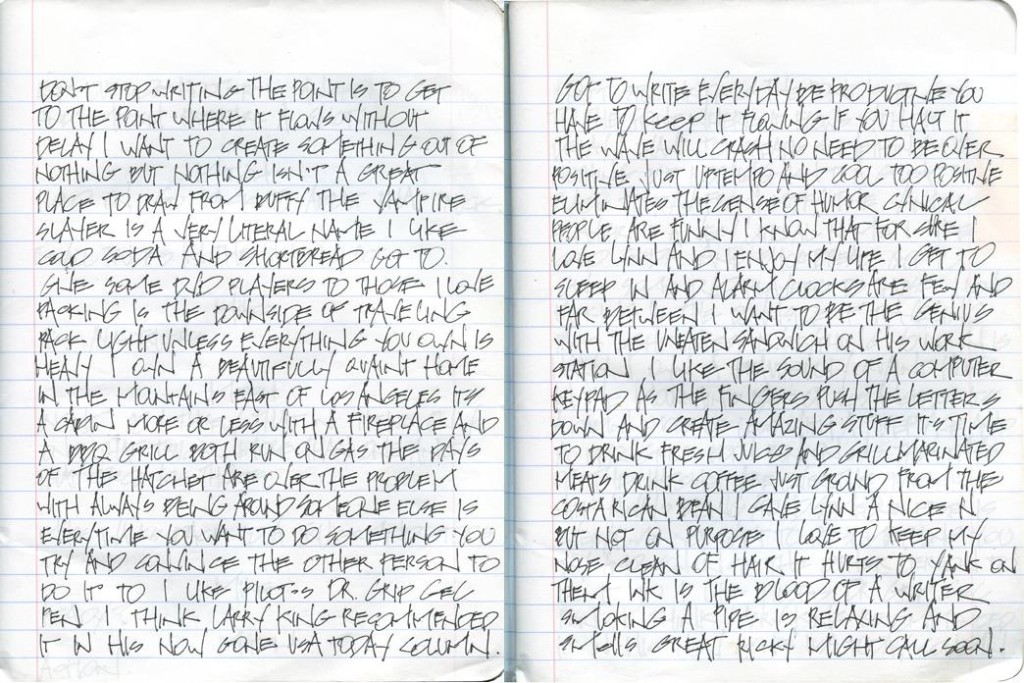 DON'T STOP WRITING THE POINT IS TO GET
TO THE POINT WHERE IT FLOWS WITHOUT
DELAY I WANT TO CREATE SOMETHING OUT OF
NOTHING BUT NOTHING ISN'T A GREAT
PLACE TO DRAW FROM BUFFY THE VAMPIRE
SLAYER IS A VERY LITERAL NAME I LIKE
COLD SODA AND SHORTBREAD GOT TO
GIVE SOME DVD PLAYERS TO THOSE I LOVE
PACKING IS THE DOWNSIDE OF TRAVELING
PACK LIGHT UNLESS EVERYTHING YOU OWN IS
HEAVY I OWN A BEAUTIFULLY QUAINT HOME
IN THE MOUNTAINS EAST OF LOS ANGELES ITS
A CABIN MORE OR LESS WITH A FIREPLACE AND
A BBQ GRILL BOTH RUN ON GAS THE DAYS
OF THE HATCHET ARE OVER THE PROBLEM
WITH ALWAYS BEING AROUND SOMEONE ELSE IS
EVERYTIME YOU WANT TO DO SOMETHING YOU
TRY AND CONVINCE THE OTHER PERSON TO
DO IT TO I LIKE PILOT'S DR. GRIP GEL
PEN I THINK LARRY KING RECOMMENDED
IT IN HIS NOW GONE USA TODAY COLUMN.
GOT TO WRITE EVERYDAY BE PRODUCTIVE YOU
HAVE TO KEEP IT FLOWING IF YOU HALT IT
THE WAVE WILL CRASH NO NEED TO BE OVER
POSITIVE JUST UPTEMPO AND COOL TOO POSITIVE
ELIMINATES THE SENSE OF HUMOR CYNICAL
PEOPLE ARE FUNNY I KNOW THAT FOR SURE I
LOVE LYNN AND I ENJOY MY LIFE I GET TO
SLEEP IN AND ALARM CLOCKS ARE FEW AND
FAR BETWEEN I WANT TO BE THE GENIUS
WITH THE UNEATEN SANDWICH ON HIS WORK
STATION I LIKE THE SOUND OF A COMPUTER
KEYPAD AS THE FINGERS PUSH THE LETTERS
DOWN AND CREATE AMAZING STUFF IT'S TIME
TO DRINK FRESH JUICES AND GRILL MARINATED
MEATS DRINK COFFEE JUST GROUND FROM THE
COSTA RICAN BEAN I GAVE LYNN A NICE N
BUT NOT ON PURPOSE I LOVE TO KEEP MY
NOSE CLEAN OF HAIR IT HURTS TO YANK ON
THEM INK IS THE BLOOD OF A WRITER
SMOKING A PIPE IS RELAXING AND
SMELLS GREAT RICKY MIGHT CALL SOON.